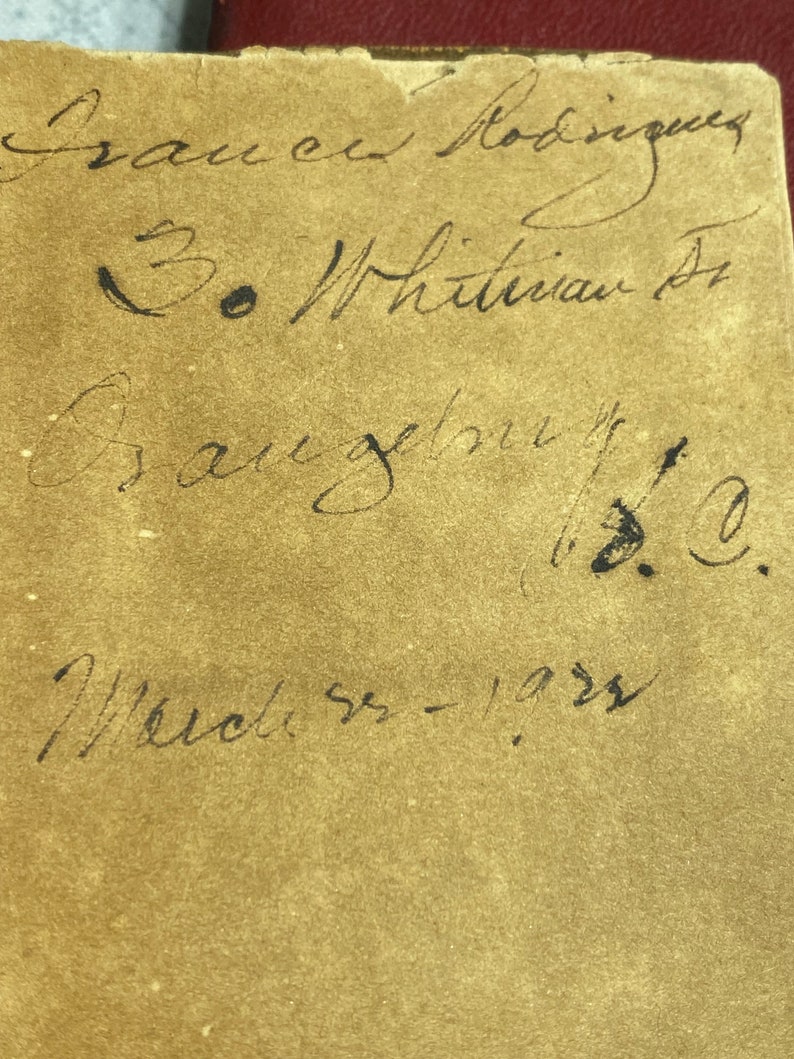 Frances Rodrigues
3. Whitman St
Orangeburg
S. C.
March 22-1922